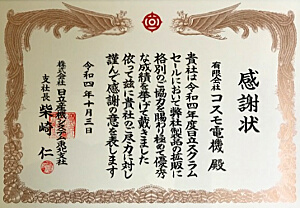 感謝状
有限会社 コスモ電機 殿
貴社は令和四年度日立スクラム
セールにおいて弊社製品の拡販に
格別のご協力を賜わり極めて優秀
な成績を挙げて戴きました
依って茲に貴社のご尽力に対し
謹んで感謝の意を表します
令和四年十月三日
株式会社 日立産機システム 東北支社
支社長 柴崎 仁